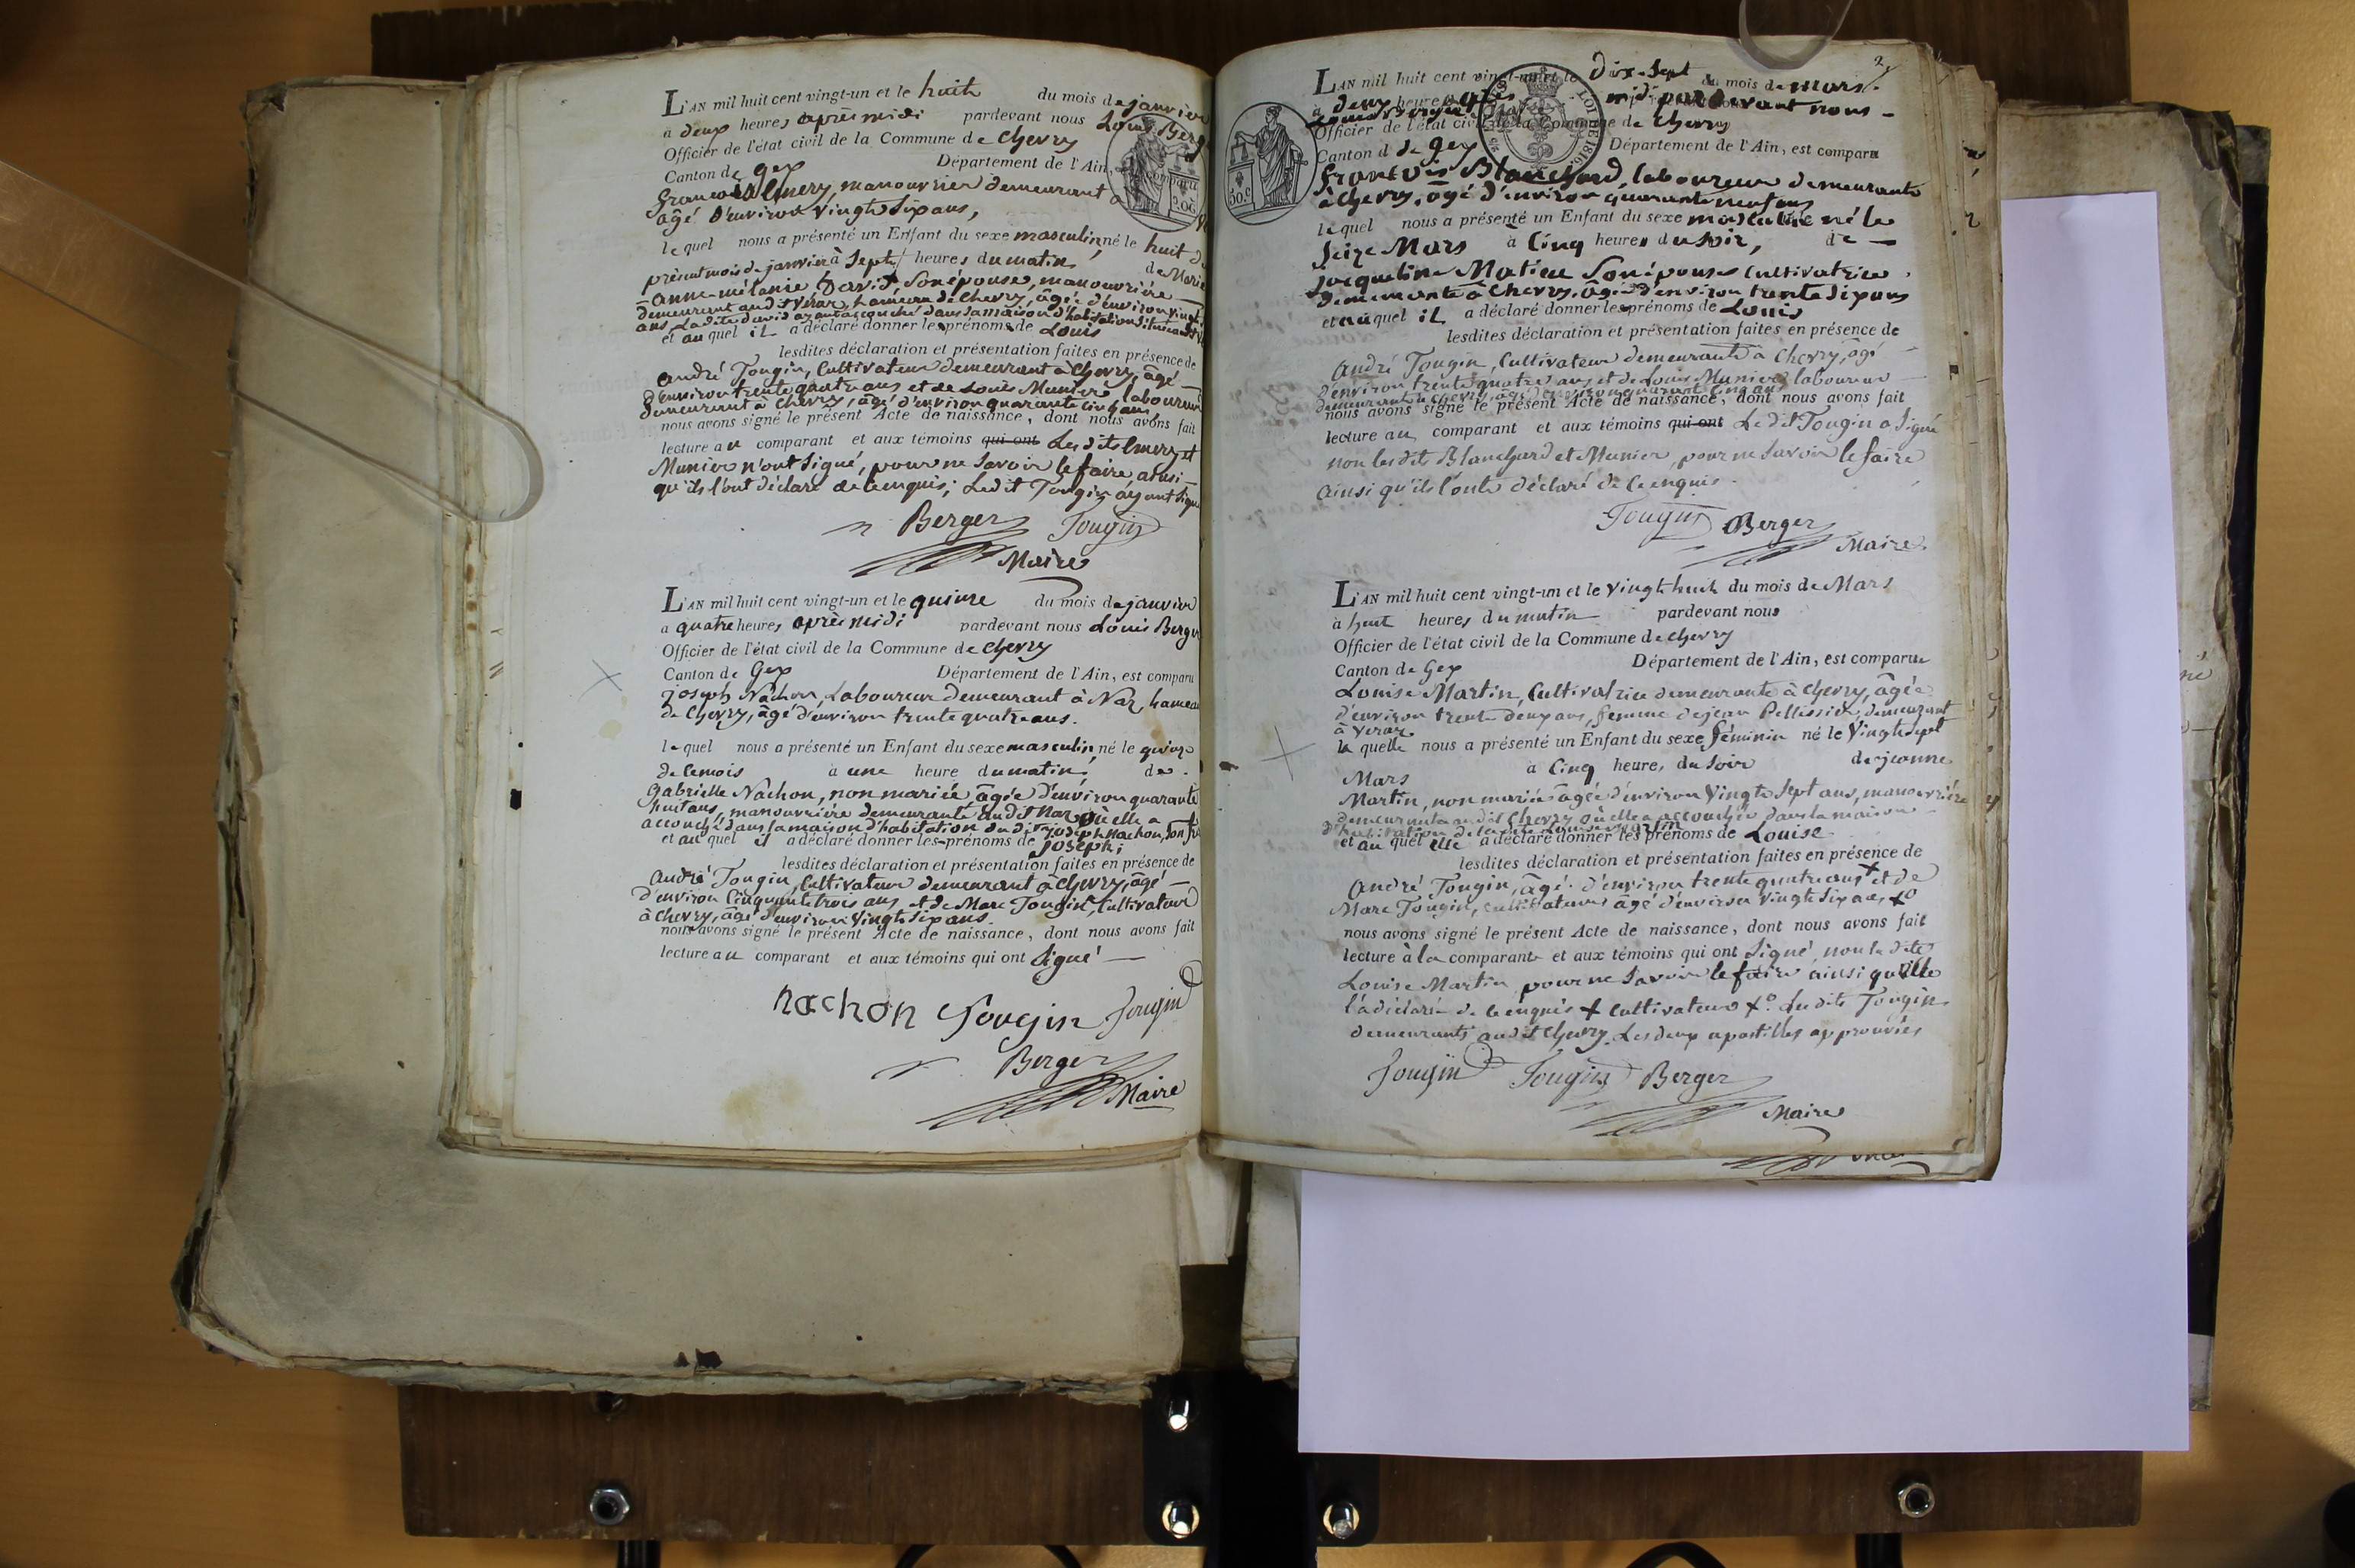 L'AN mil huit cent vingt-un et le huit du mois de janvier
a deux heures après midi pardevant nous Louis Berger
Officier de l'état civil de la Commune de Chevry
Canton de Gex Département de l'Ain, est comparu
françois Emery, manouvrier demeurant a
âgé d'environ vingt Six ans,
le quel nous a présenté un Enfant du sexe masculin, né le huit du
présent mois de janvier à Sept heures du matin, de Marie
Anne-mélanie David, Son épouse, manouvrière
demeurant audit Véraz, hameau de Chevry, âgée d'environ vingt
ans, Ladite david ayant accouché dans la maison d'habitation
et au quel il a déclaré donner les prénoms de Louis
lesdites déclaration et présentation faites en présence de
André Tougin, Cultivateur demeurant à Chevry, âgé
d'environ trente quatre ans et de Louis Munier laboureur
demeurant à Chevry, âgé d'environ quarante cinq ans
nous avons signé le présent Acte de naissance, dont nous avons fait
lecture au comparant et aux témoins qui ont Lesdits Emery et
Munier n'ont Signé, pour ne Savoir le faire ainsi
qu'ils l'ont déclaré de ce enquis; Ledit Tougin ayant Signé
Berger Tougin
Maire
L'AN mil huit cent vingt-un et le quinze du mois de janvier
a quatre heures après midi pardevant nous Louis Berger
Officier de l'état civil de la Commune de Chevry
Canton de Gex Département de l'Ain, est comparu
joseph Nachon, Laboureur demeurant à Naz, hameau
de Chevry, âgé d'environ trente quatre ans.
le quel nous a présenté un Enfant du sexe masculin, né le quinze
de ce mois à une heure du matin, de
Gabrielle Nachon, non mariée âgée d'environ quarante
huit ans, manouvrière demeurante audit Naz où elle a
accouché dans la maison d'habitation du dit joseph Nachon, son
et au quel il a déclaré donner les prénoms de Joseph;
lesdites déclaration et présentation faites en présence de
André Tougin, Cultivateur demeurant à Chevry, âgé
d'environ Cinquante trois ans et de Marc Tougin, Cultivateur
à Chevry, âgé d'environ Vingt Six ans.
nous avons signé le présent Acte de naissance, dont nous avons fait
lecture au comparant et aux témoins qui ont Signé
nachon Tougin Tougin
Berger
Maire
2
L'AN mil huit cent vingt-un et le dix-Sept du mois de mars
à deux heures après midi pardevant nous
Louis Berger Maire
Officier de l'état civil de la Commune de Chevry
Canton d de Gex Département de l'Ain, est comparu
françois Blanchard, laboureur demeurante
à Chevry, âgé d'environ quarante neuf ans
le quel nous a présenté un Enfant du sexe masculine né le
Seize Mars à Cinq heures du Soir, de
jacqueline Matieu Son épouse Cultivatrice
demeurante à Chevry, âgée d'environ trente Six ans
et au quel il a déclaré donner les prénoms de Louis
lesdites déclaration et présentation faites en présence de
André Tougin, Cultivateur demeurante à Chevry, âgé
d'environ trente quatre ans et de Louis Munier laboureur
demeurant à Chevry, âgé d'environ quarante cinq ans
nous avons signé le présent Acte de naissance, dont nous avons fait
lecture au comparant et aux témoins qui ont Le dit Tougin a Signé
non lesdits Blanchard et Munier, pour ne Savoir le faire
ainsi qu'ils l'onte déclaré de ce enquis.
Tougin Berger
Maire
L'AN mil huit cent vingt-un et le Vingt huit du mois de Mars
à huit heures du matin pardevant nous
Officier de l'état civil de la Commune de Chevry
Canton de Gex Département de l'Ain, est comparue
Louise Martin, Cultivatrice demeurante à Chevry, âgée
d'environ trente deux ans, femme de jean Pellissier, demeurant
à Veraz
la quelle nous a présenté un Enfant du sexe féminin né le Vingt Sept
Mars à Cinq heures du Soir de jeanne
Martin, non mariée âgée d'environ Vingt Sept ans, manouvrière
demeurante audit Chevry où elle a accouchée dans la maison
d'habitation de la dite Louise Martin
et au quel elle a déclaré donner les prénoms de Louise
lesdites déclaration et présentation faites en présence de
André Tougin, âgé d'environ trente quatre ans + et de
Marc Tougin, cultivateur âgé d'environ Vingt Six ans, +o
nous avons signé le présent Acte de naissance, dont nous avons fait
lecture à la comparante et aux témoins qui ont Signé, non la dite
Louise Martin pour ne Savoir le faire ainsi qu'elle
l'a déclaré de ce enquis + Cultivateur +o Lesdits Tougin
demeurants audit Chevry. Les deux apostilles approuvées
Tougin Tougin Berger
Maire